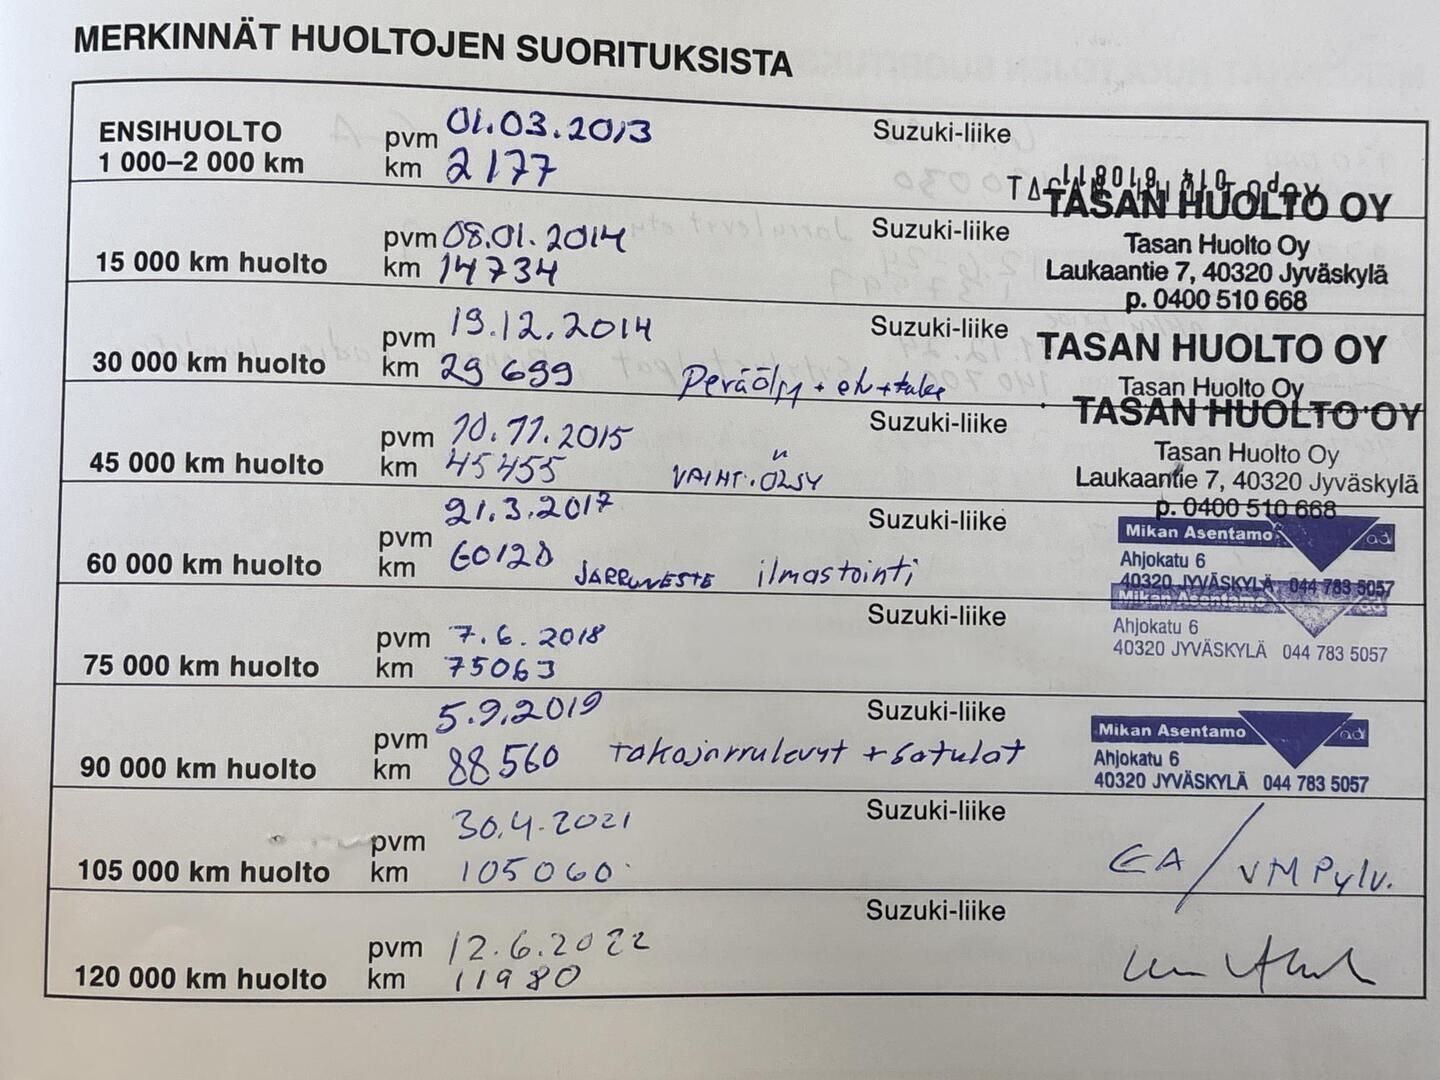 MERKINNÄT HUOLTOJEN SUORITUKSISTA
ENSIHUOLTO
1 000–2 000 km
pvm 01.03.2013
km 2177
Suzuki-liike
TASAN HUOLTO OY
Tasan Huolto Oy
Laukaantie 7, 40320 Jyväskylä
p. 0400 510 668
15 000 km huolto
pvm 08.01.2014
km 14734
Suzuki-liike
30 000 km huolto
pvm 19.12.2014
km 29 699
Peräöljy + etu + taka
Suzuki-liike
TASAN HUOLTO OY
Tasan Huolto Oy
45 000 km huolto
pvm 10.11.2015
km 45455
VAIHT. ÖLJY
Suzuki-liike
TASAN HUOLTO OY
Tasan Huolto Oy
Laukaantie 7, 40320 Jyväskylä
p. 0400 510 668
60 000 km huolto
pvm 21.3.2017
km 60128
JARRUNESTE ilmastointi
Suzuki-liike
Mikan Asentamo ad
Ahjokatu 6
40320 JYVÄSKYLÄ 044 783 5057
75 000 km huolto
pvm 7.6.2018
km 75063
Suzuki-liike
Mikan Asentamo ad
Ahjokatu 6
40320 JYVÄSKYLÄ 044 783 5057
90 000 km huolto
pvm 5.9.2019
km 88560
takajarrulevyt + satulat
Suzuki-liike
Mikan Asentamo ad
Ahjokatu 6
40320 JYVÄSKYLÄ 044 783 5057
105 000 km huolto
pvm 30.4.2021
km 105060
Suzuki-liike
EA / VM Pylv.
120 000 km huolto
pvm 12.6.2022
km 11980
Suzuki-liike